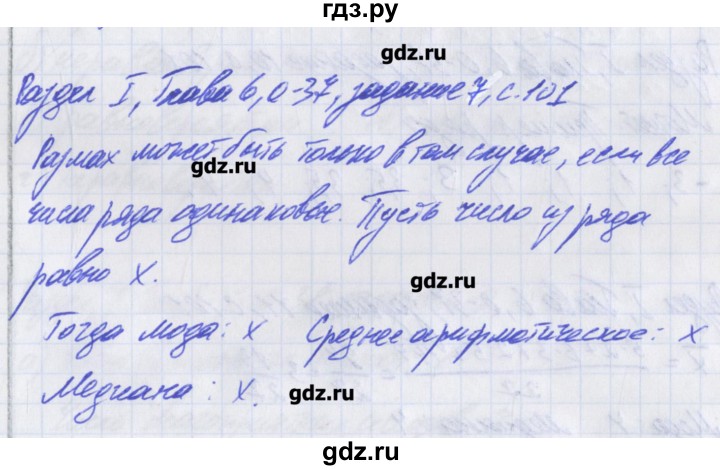 гдз.ру
gdz.ru
Раздел I, Глава 6, О-37, задание 7, с. 101
Размах может быть только в том случае, если все
gdz.ru
числа ряда одинаковые. Пусть число из ряда
равно x.
gdz.ru
Тогда мода: x Среднее арифметическое: x
Медиана: x.
gdz.ru
gdz.ru